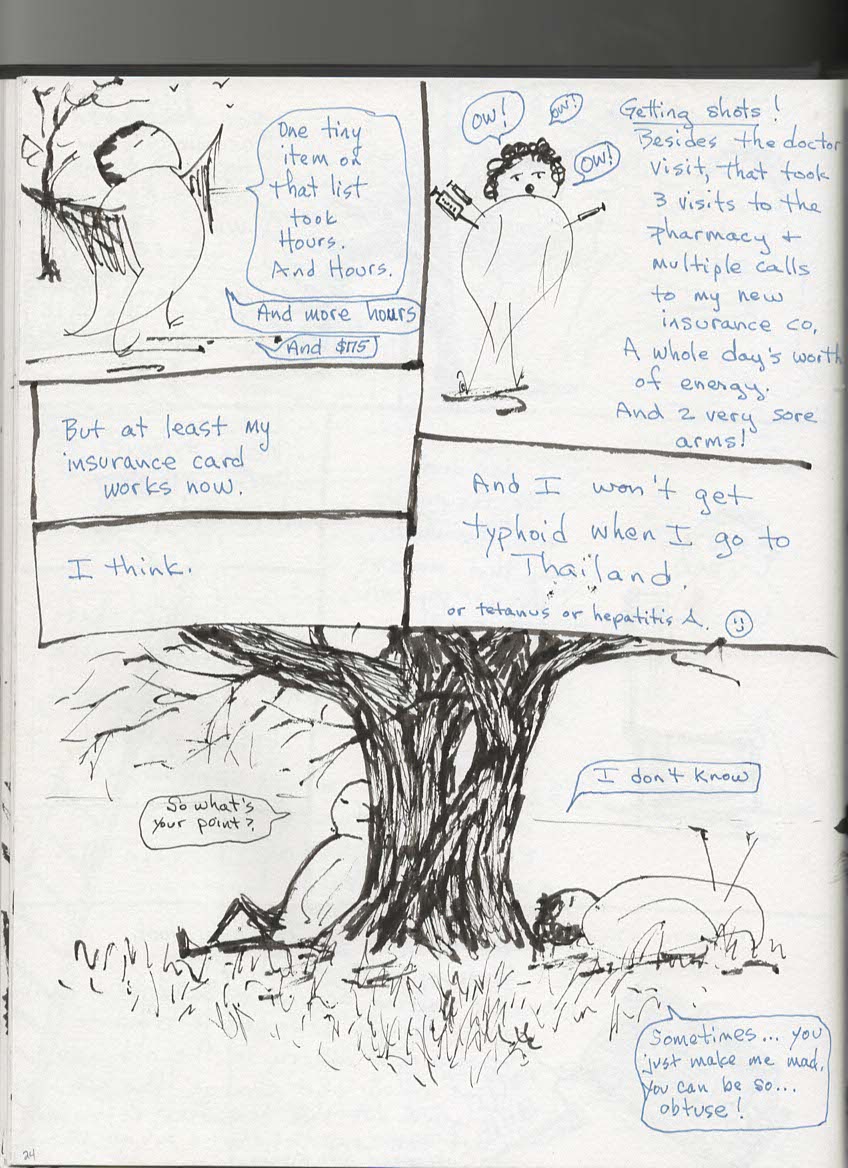 One tiny
item on
that list
took
Hours.
And Hours.
And more hours
And $175
OW!
OW!
OW!
Getting shots!
Besides the doctor
visit, that took
3 visits to the
pharmacy +
multiple calls
to my new
insurance co,
A whole day's worth
of energy.
And 2 very sore
arms!
But at least my
insurance card
works now.
I think.
And I won't get
typhoid when I go to
Thailand.
or tetanus or hepatitis A.
So what's
your point?
I don't know
Sometimes... you
just make me mad.
You can be so...
obtuse!
24